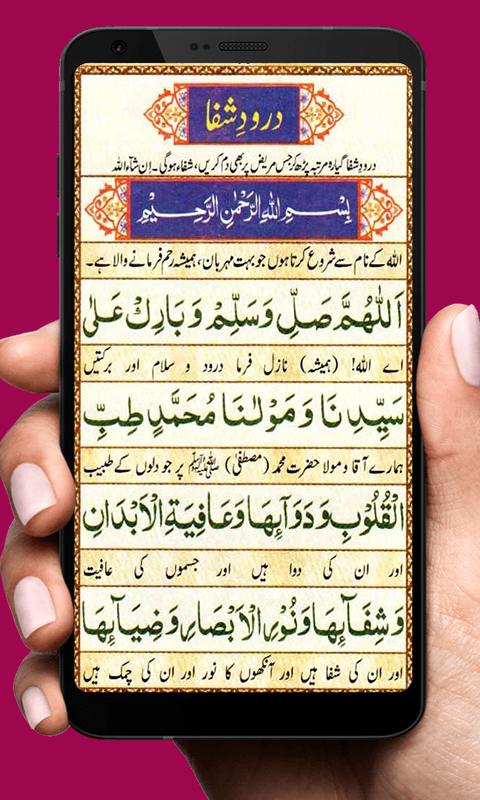 درودِ شفا
درودِ شفا گیارہ مرتبہ پڑھ کر جس مریض پر بھی دم کریں، شفاء ہوگی۔ اِن شآء اللہ
بِسْمِ اللهِ الرَّحْمٰنِ الرَّحِيْمِ
اللہ کے نام سے شروع کرتا ہوں جو بہت مہربان، ہمیشہ رحم فرمانے والا ہے۔
اَللّٰهُمَّ صَلِّ وَسَلِّمْ وَبَارِكْ عَلٰی
اے اللہ! (ہمیشہ) نازل فرما درود و سلام اور برکتیں
سَيِّدِنَا وَمَوْلٰنَا مُحَمَّدٍ طِبِّ
ہمارے آقا و مولا حضرت محمد (مصطفیٰ) ﷺ پر جو دلوں کے طبیب
الْقُلُوْبِ وَدَوَآئِهَا وَعَافِيَةِ الْاَبْدَانِ
اور ان کی دوا ہیں اور جسموں کی عافیت
وَشِفَآئِهَا وَنُوْرِ الْاَبْصَارِ وَضِيَآئِهَا
اور ان کی شفا ہیں اور آنکھوں کا نور اور ان کی چمک ہیں